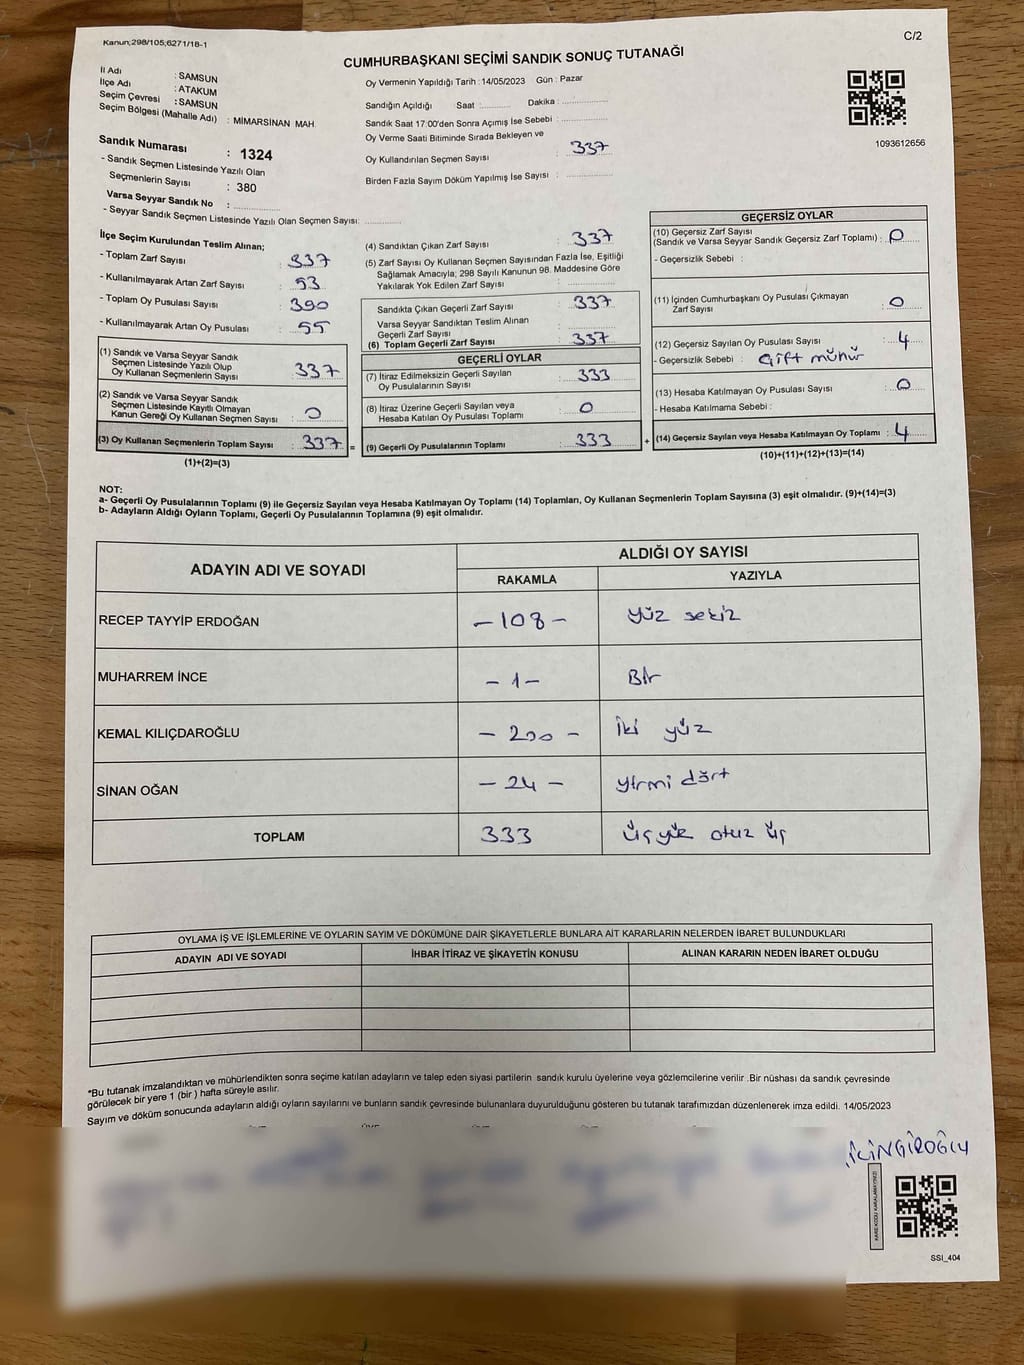 Kanun;298/105;6271/18-1
C/2
CUMHURBAŞKANI SEÇİMİ SANDIK SONUÇ TUTANAĞI
İl Adı : SAMSUN
İlçe Adı : ATAKUM
Seçim Çevresi : SAMSUN
Seçim Bölgesi (Mahalle Adı) : MİMARSİNAN MAH.
Oy Vermenin Yapıldığı Tarih : 14/05/2023 Gün : Pazar
Sandığın Açıldığı Saat :........... Dakika : ..................
Sandık Saat 17:00'den Sonra Açımış İse Sebebi : ..................
Oy Verme Saati Bitiminde Sırada Bekleyen ve
Oy Kullandırılan Seçmen Sayısı : 337
Birden Fazla Sayım Döküm Yapılmış İse Sayısı : ..................
1093612656
Sandık Numarası : 1324
- Sandık Seçmen Listesinde Yazılı Olan
Seçmenlerin Sayısı : 380
Varsa Seyyar Sandık No : ..................
- Seyyar Sandık Seçmen Listesinde Yazılı Olan Seçmen Sayısı: ..............
İlçe Seçim Kurulundan Teslim Alınan;
- Toplam Zarf Sayısı : 337
- Kullanılmayarak Artan Zarf Sayısı : 53
- Toplam Oy Pusulası Sayısı : 390
- Kullanılmayarak Artan Oy Pusulası : 55
(1) Sandık ve Varsa Seyyar Sandık
Seçmen Listesinde Yazılı Olup
Oy Kullanan Seçmenlerin Sayısı : 337
(2) Sandık ve Varsa Seyyar Sandık
Seçmen Listesinde Kayıtlı Olmayan
Kanun Gereği Oy Kullanan Seçmen Sayısı : 0
(3) Oy Kullanan Seçmenlerin Toplam Sayısı : 337 =
(1)+(2)=(3)
(4) Sandıktan Çıkan Zarf Sayısı : 337
(5) Zarf Sayısı Oy Kullanan Seçmen Sayısından Fazla İse, Eşitliği
Sağlamak Amacıyla; 298 Sayılı Kanunun 98. Maddesine Göre
Yakılarak Yok Edilen Zarf Sayısı : ..................
Sandıkta Çıkan Geçerli Zarf Sayısı : 337
Varsa Seyyar Sandıktan Teslim Alınan
Geçerli Zarf Sayısı : ..................
(6) Toplam Geçerli Zarf Sayısı : 337
GEÇERLİ OYLAR
(7) İtiraz Edilmeksizin Geçerli Sayılan
Oy Pusulalarının Sayısı : 333
(8) İtiraz Üzerine Geçerli Sayılan veya
Hesaba Katılan Oy Pusulası Toplamı : 0
(9) Geçerli Oy Pusulalarının Toplamı : 333 +
GEÇERSİZ OYLAR
(10) Geçersiz Zarf Sayısı
(Sandık ve Varsa Seyyar Sandık Geçersiz Zarf Toplamı) : 0
- Geçersizlik Sebebi :
(11) İçinden Cumhurbaşkanı Oy Pusulası Çıkmayan
Zarf Sayısı : 0
(12) Geçersiz Sayılan Oy Pusulası Sayısı : 4
- Geçersizlik Sebebi : Çift mühür
(13) Hesaba Katılmayan Oy Pusulası Sayısı : 0
- Hesaba Katılmama Sebebi :
(14) Geçersiz Sayılan veya Hesaba Katılmayan Oy Toplamı : 4
(10)+(11)+(12)+(13)=(14)
NOT:
a- Geçerli Oy Pusulalarının Toplamı (9) ile Geçersiz Sayılan veya Hesaba Katılmayan Oy Toplamı (14) Toplamları, Oy Kullanan Seçmenlerin Toplam Sayısına (3) eşit olmalıdır. (9)+(14)=(3)
b- Adayların Aldığı Oyların Toplamı, Geçerli Oy Pusulalarının Toplamına (9) eşit olmalıdır.
ADAYIN ADI VE SOYADI
ALDIĞI OY SAYISI
RAKAMLA YAZIYLA
RECEP TAYYİP ERDOĞAN -108- Yüz sekiz
MUHARREM İNCE -1- Bir
KEMAL KILIÇDAROĞLU -200- İki yüz
SİNAN OĞAN -24- yirmi dört
TOPLAM 333 üç yüz otuz üç
OYLAMA İŞ VE İŞLEMLERİNE VE OYLARIN SAYIM VE DÖKÜMÜNE DAİR ŞİKAYETLERLE BUNLARA AİT KARARLARIN NELERDEN İBARET BULUNDUKLARI
ADAYIN ADI VE SOYADI İHBAR İTİRAZ VE ŞİKAYETİN KONUSU ALINAN KARARIN NEDEN İBARET OLDUĞU
*Bu tutanak imzalandıktan ve mühürlendikten sonra seçime katılan adayların ve talep eden siyasi partilerin sandık kurulu üyelerine veya gözlemcilerine verilir .Bir nüshası da sandık çevresinde
görülecek bir yere 1 (bir ) hafta süreyle asılır.
Sayım ve döküm sonucunda adayların aldığı oyların sayılarını ve bunların sandık çevresinde bulunanlara duyurulduğunu gösteren bu tutanak tarafımızdan düzenlenerek imza edildi. 14/05/2023
KARE KODU KARALAMAYINIZ!
SSI_404